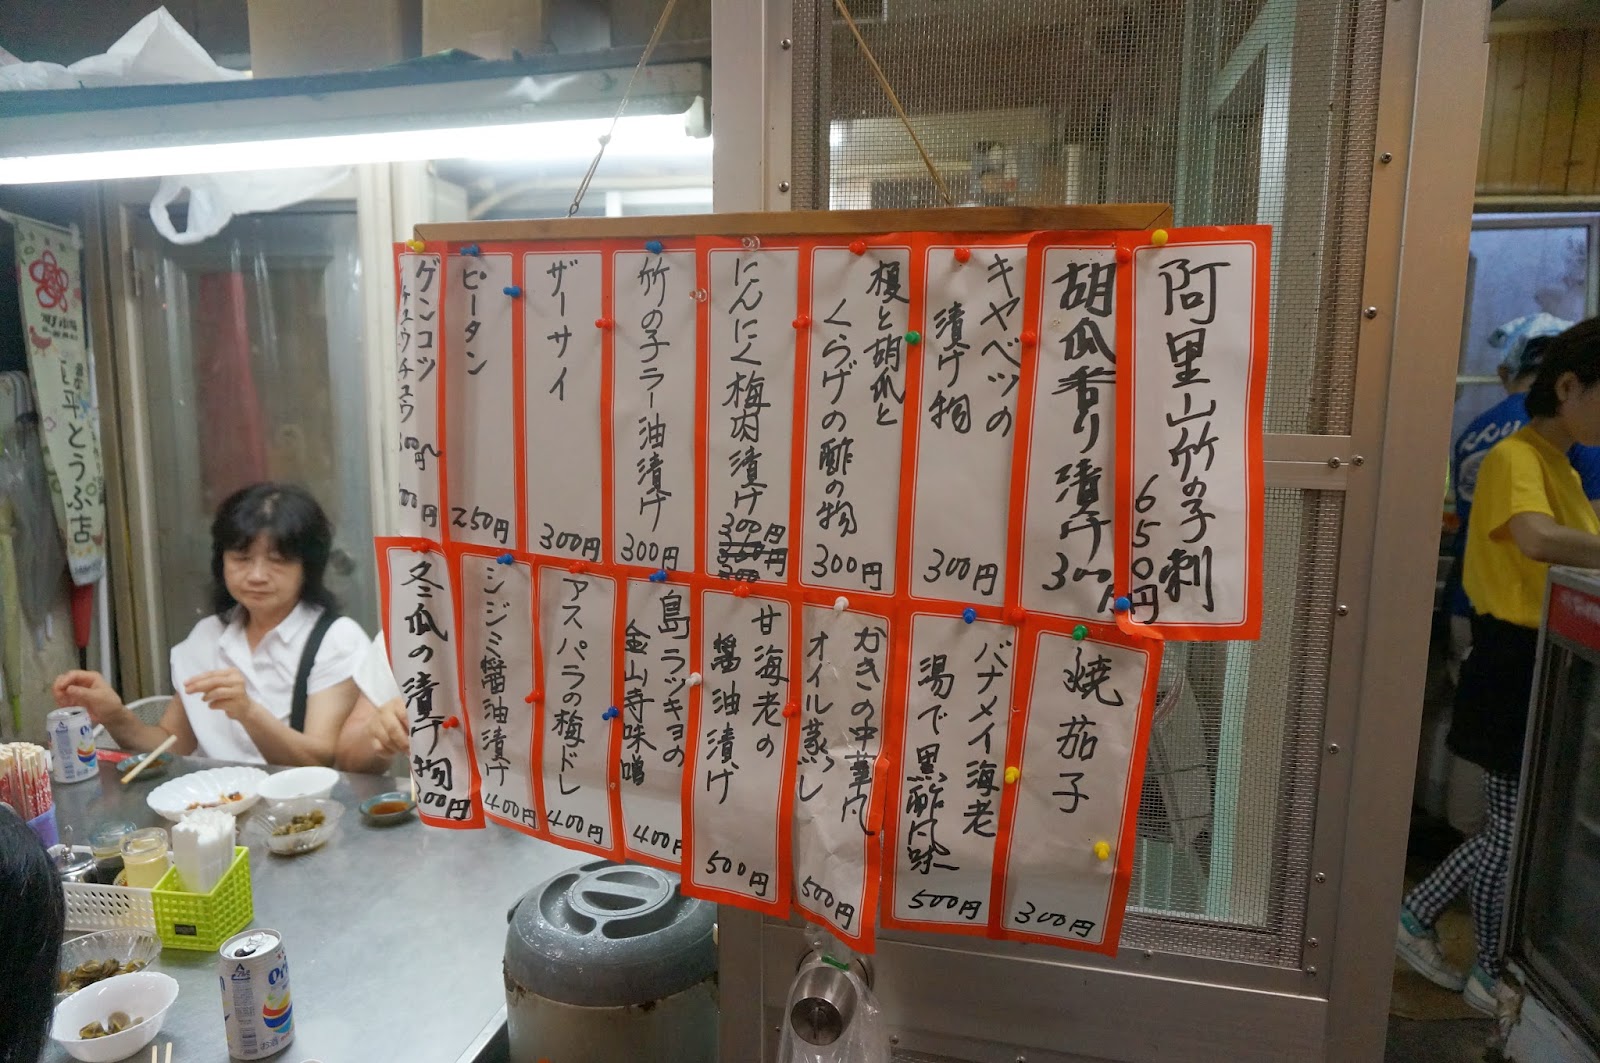 阿里山竹の子刺
650円
胡瓜香り漬け
300円
キャベツの
漬け物
300円
榎と胡瓜と
くらげの酢の物
300円
にんにく梅肉漬け
300円
竹の子ラー油漬け
300円
ザーサイ
300円
ピータン
250円
ゲンコツ
チュウチュウ
焼茄子
300円
バナメイ海老
湯で黒酢風味
500円
かきの中華風
オイル蒸し
500円
甘海老の
醤油漬け
500円
島ラッキョの
金山寺味噌
400円
アスパラの梅ドレ
400円
シジミ醤油漬け
400円
冬瓜の漬け物
300円
平とうふ店